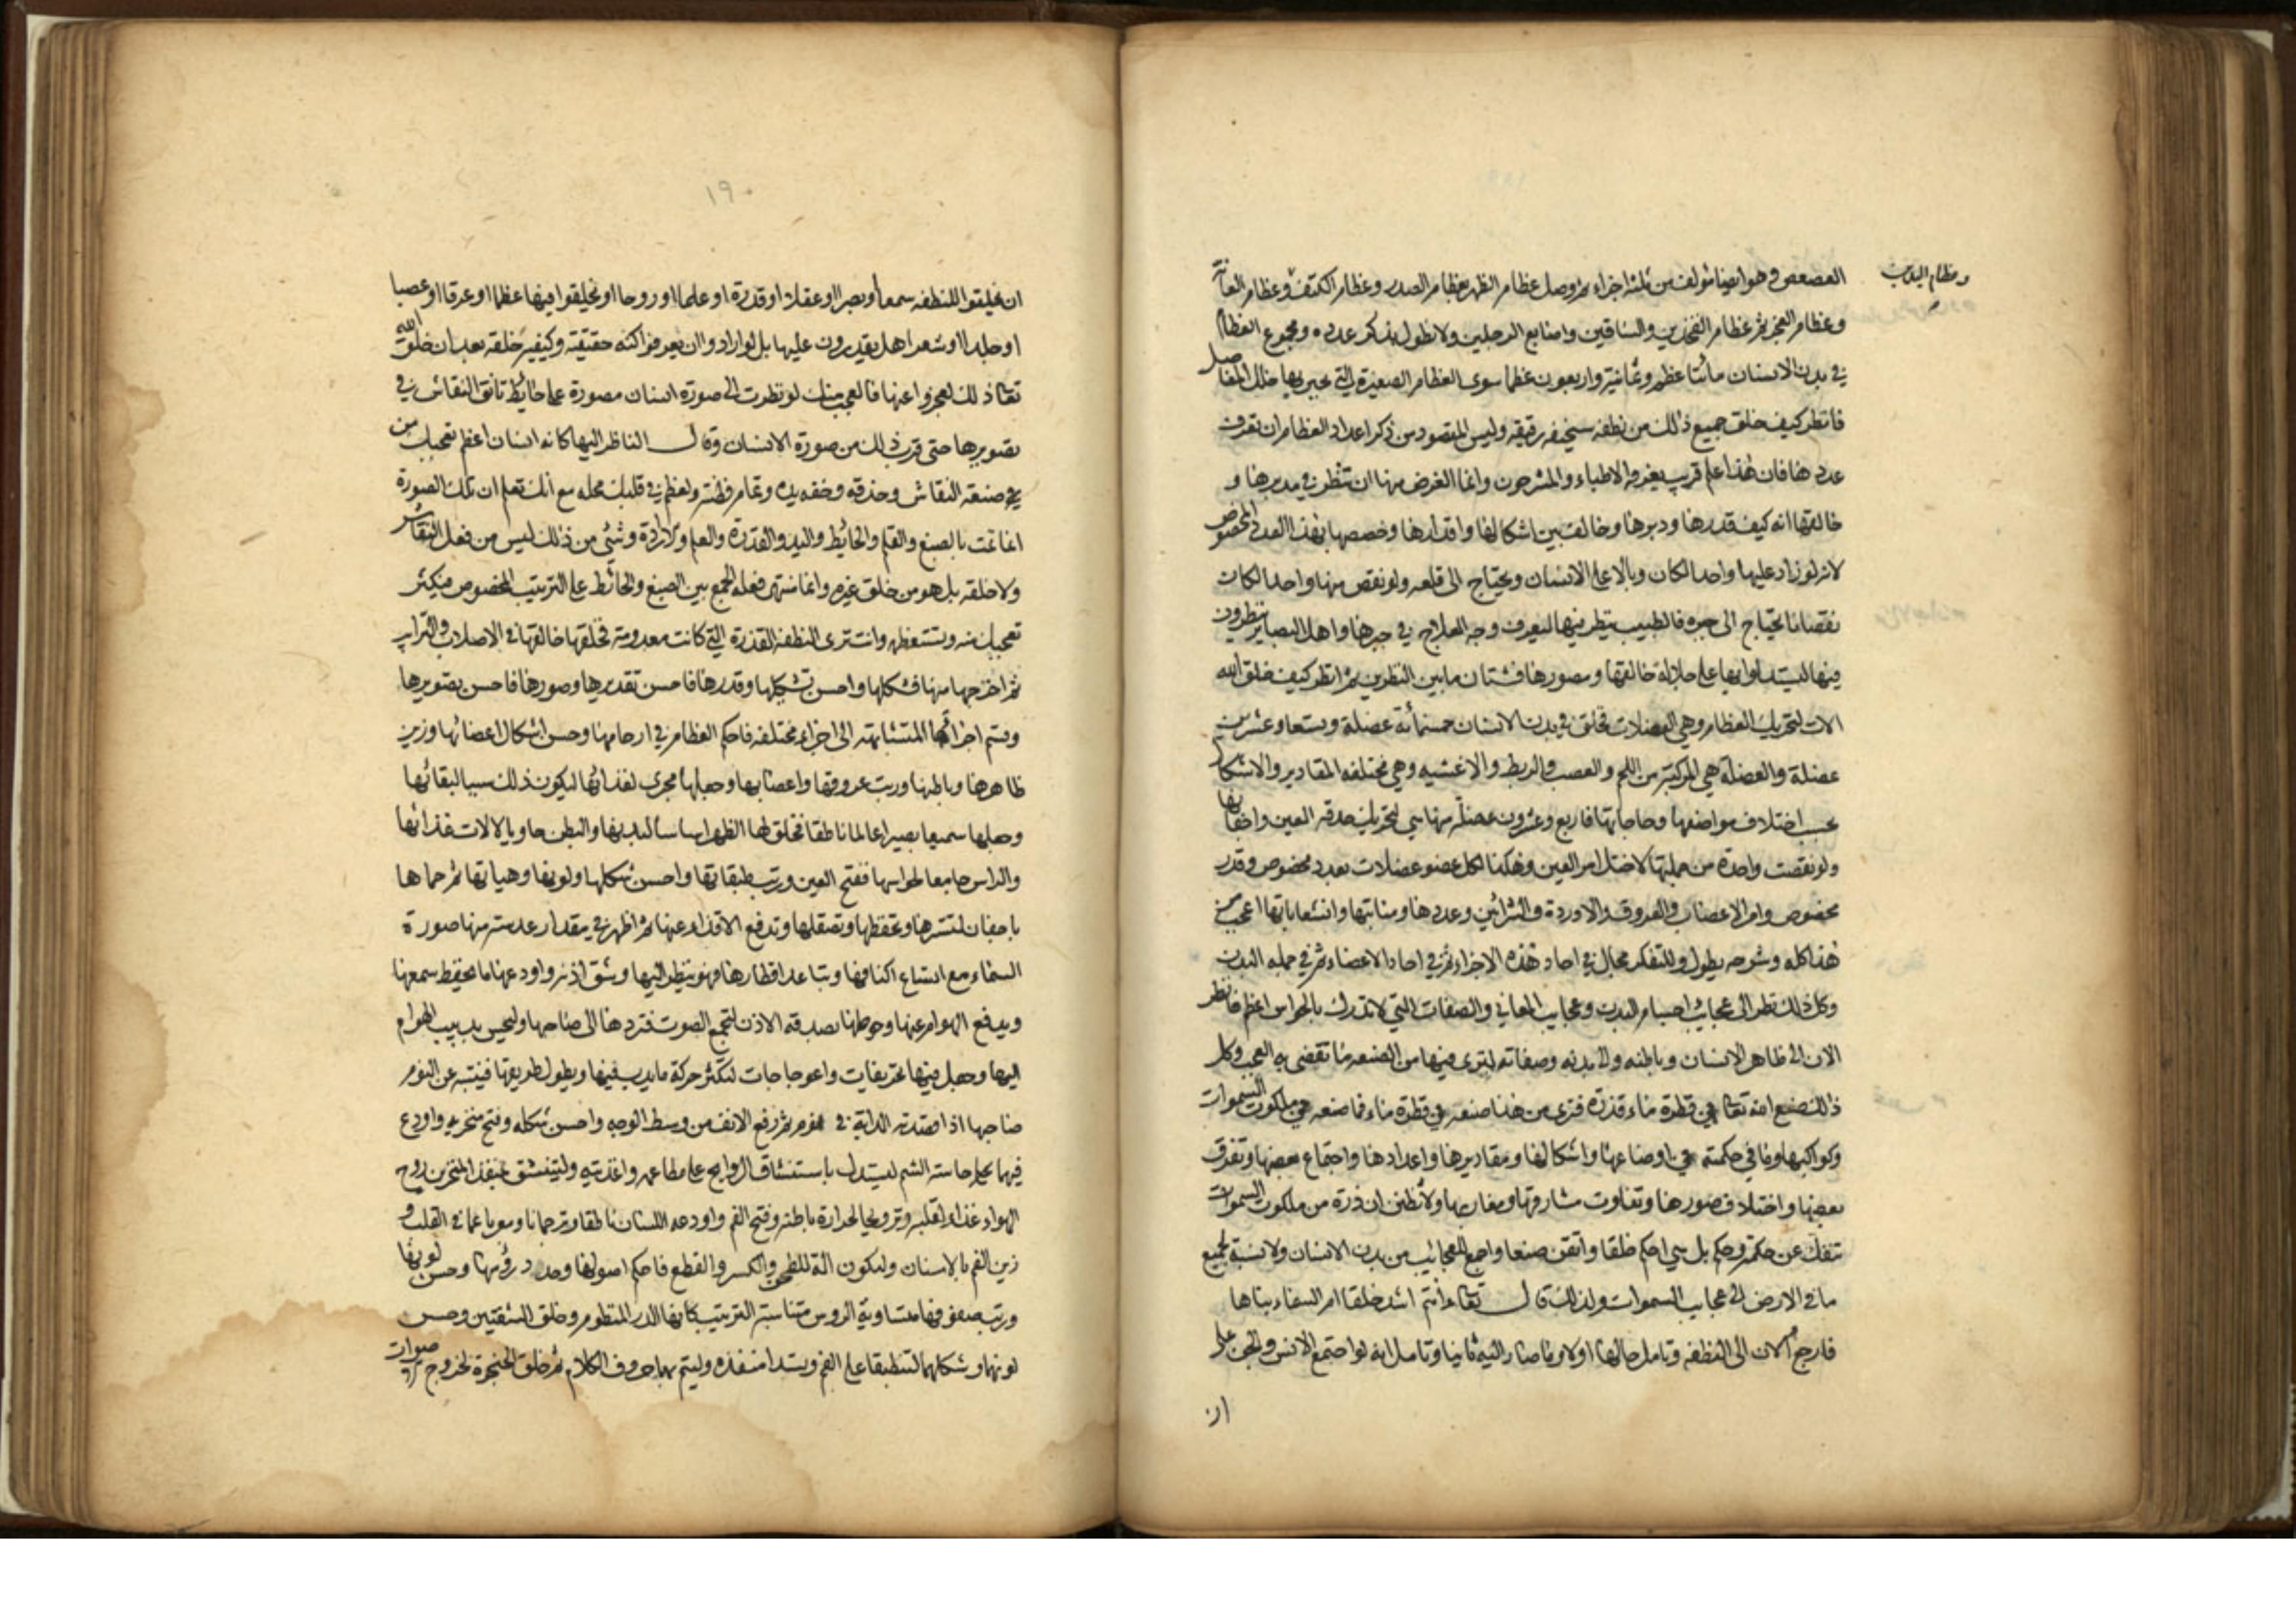 وعظام اليدين
العصعص وهو ايضا مؤلف من ثلثة اجزاء ثم وصل عظام الظهر بعظام الصدر وعظام الكتف وعظام العانة
وعظام العجز ثم عظام الفخذين والساقين واصابع الرجلين ولا نطول بذكر عدده ومجموع العظام
في بدن الانسان مائتا عظم وثمانية واربعون عظما سوى العظام الصغيرة التي حشي بها خلل المفاصل
فانظر كيف خلق جميع ذلك من نطفه سخيفه رقيقه وليس المقصود من ذكر اعداد العظام ان تعرف
عددها فان هذا علم قريب يعرفه الاطباء والمشرحون وانما الغرض منها ان تنظر في مدبرها و
خالقها انه كيف قدرها ودبرها وخالف بين اشكالها واقدارها وخصصها بهذا العدد المخصوص
لانه لو زاد عليها واحدا لكان وبالا على الانسان ويحتاج الى قلعه ولو نقص منها واحدا لكان
نقصانا يحتاج الى جبره فالطبيب ينظر فيها ليعرف وجه العلاج في جبرها واهل البصاير ينظرون
فيها ليستدلوا بها على جلالة خالقها ومصورها فشتان ما بين النظرين ثم انظر كيف خلق الله
الات لتحريك العظام وهي العضلات فخلق في بدن الانسان خمسمائة عضلة وتسعا وعشرين
عضلة والعضلة هي المركبة من اللحم والعصب والربط والاغشيه وهي مختلفه المقادير والاشكال
بحسب اختلاف مواضعها وحاجاتها فاربع وعشرون عضلة منها هي لتحريك حدقه العين واجفانها
ولو نقصت واحدة من جملتها لاختل امر العين وهكذا لكل عضو عضلات بعدد مخصوص وقدر
مخصوص وامر الاعصاب والعروق والاوردة والشرائين وعددها ومنابتها وانشعاباتها اعجب من
هذا كله وشرحه يطول وللتفكر مجال في احاد هذه الاجزاء ثم في احاد الاعضاء ثم في جمله البدن
وكل ذلك نظر الى عجائب اجسام البدن وعجايب المعاني والصفات التي لا تدرك بالحواس اعظم فانظر
الان الى ظاهر الانسان وباطنه والى بدنه وصفاته لترى فيها من الصنعه ما تقضى به العجب وكل
ذلك صنع الله تعالى في قطرة ماء قذرة فترى من هذا صنعه في قطرة ماء فما صنعه في ملكوت السموات
وكواكبها وما في حكمته في اوضاعها واشكالها ومقاديرها واعدادها واجتماع بعضها وتفرق
بعضها واختلاف صورها وتفاوت مشارقها ومغاربها ولا تظنن ان ذرة من ملكوت السموات
تنفك عن حكمة وحكم بل هي احكم خلقا واتقن صنعا واجمع للعجائب من بدن الانسان ولا نسبة لجميع
ما في الارض الى عجايب السموات ولذلك قال تعالى أانتم اشد خلقا ام السماء بناها
فارجع الان الى النطفه وتامل حالها اولا وما صارت اليه ثانيا وتامل انه لو اجتمع الانس والجن على
ان
١٩٠
ان يخلقوا للنطفه سمعا او بصرا او عقلا او قدرة او علما او روحا او يخلقوا فيها عظما او عرقا او عصبا
او جلدا او شعرا هل يقدرون عليها بل لو ارادوا ان يعرفوا كنه حقيقته وكيفية خلقه بعد ان خلق الله
تعالى ذلك لعجزوا عنها فالعجب منك لو نظرت الى صورة انسان مصورة على حائط تانق النقاش في
تصويرها حتى قرب ذلك من صورة الانسان وقال الناظر اليها كانه انسان اعظم تعجبك من
في صنعه النقاش وحذقه وخفه يده وتمام فطنته ولعظم في قلبك محله مع انك تعلم ان تلك الصورة
انما تمت بالصبغ والقلم والحائط واليد والقدرة والعلم والارادة وشئ من ذلك ليس من فعل النقاش
ولا خلقه بل هو من خلق غيره وانما منتهى فعله الجمع بين الصبغ والحائط على الترتيب المخصوص فيكثر
تعجبك منه وتستعظمه وانت ترى النطفه القذرة التي كانت معدومة فخلقها خالقها في الاصلاب والترايب
ثم اخرجها منها فشكلها واحسن تشكيلها وقدرها فاحسن تقديرها وصورها فاحسن تصويرها
وقسم اجزائها المتشابهة الى اجزاء مختلفه فاحكم العظام في ارجائها وحسن اشكال اعضائها وزين
ظاهرها وباطنها ورتب عروقها واعصابها وجعلها مجرى لغذائها ليكون ذلك سببا لبقائها
وجعلها سميعا بصيرا عالما ناطقا فخلق لها الظهر اساسا لبدنها والبطن حاويا لالات غذائها
والراس جامعا لحواسها ففتح العين ورتب طبقاتها واحسن شكلها ولونها وهياتها ثم حماها
باجفان لتسترها وتحفظها وتصقلها وتدفع الاقذاء عنها ثم اظهر في مقدار عدسة منها صورة
السماء مع اتساع اكنافها وتباعد اقطارها فهو ينظر اليها وشق اذنه واودعها ما يحفظ سمعها
ويدفع الهوام عنها وحوطها بصدفه الاذن لتجمع الصوت فتردها الى صماخها وليحس بدبيب الهوام
اليها وجعل فيها تحريفات واعوجاجات لتكثر حركة ما يدب فيها ويطول طريقها فينتبه عن النوم
صاحبها اذا قصدته الدابة في نوم ثم رفع الانف من وسط الوجه واحسن شكله وفتح منخريه واودع
فيهما حاسة الشم ليستدل باستنشاق الروايح على مطاعمه واغذيته وليتنشق بمنفذ المنخرين روح
الهواء غذاء لقلبه وترويحا لحرارة باطنه وفتح الفم واودعه اللسان ناطقا وترجمانا ومعربا عما في القلب و
زين الفم بالاسنان ولتكون الة للطحن والكسر والقطع فاحكم اصولها وحدد رؤسها وحسن لونها
ورتب صفوفها متساوية الروس متناسبة الترتيب كانها الدر المنظوم وخلق الشفتين وحسن
لونها وشكلها لتنطبقا على الفم وتسدا منفذه وليتم بهما حروف الكلام ثم خلق الحنجرة لخروج